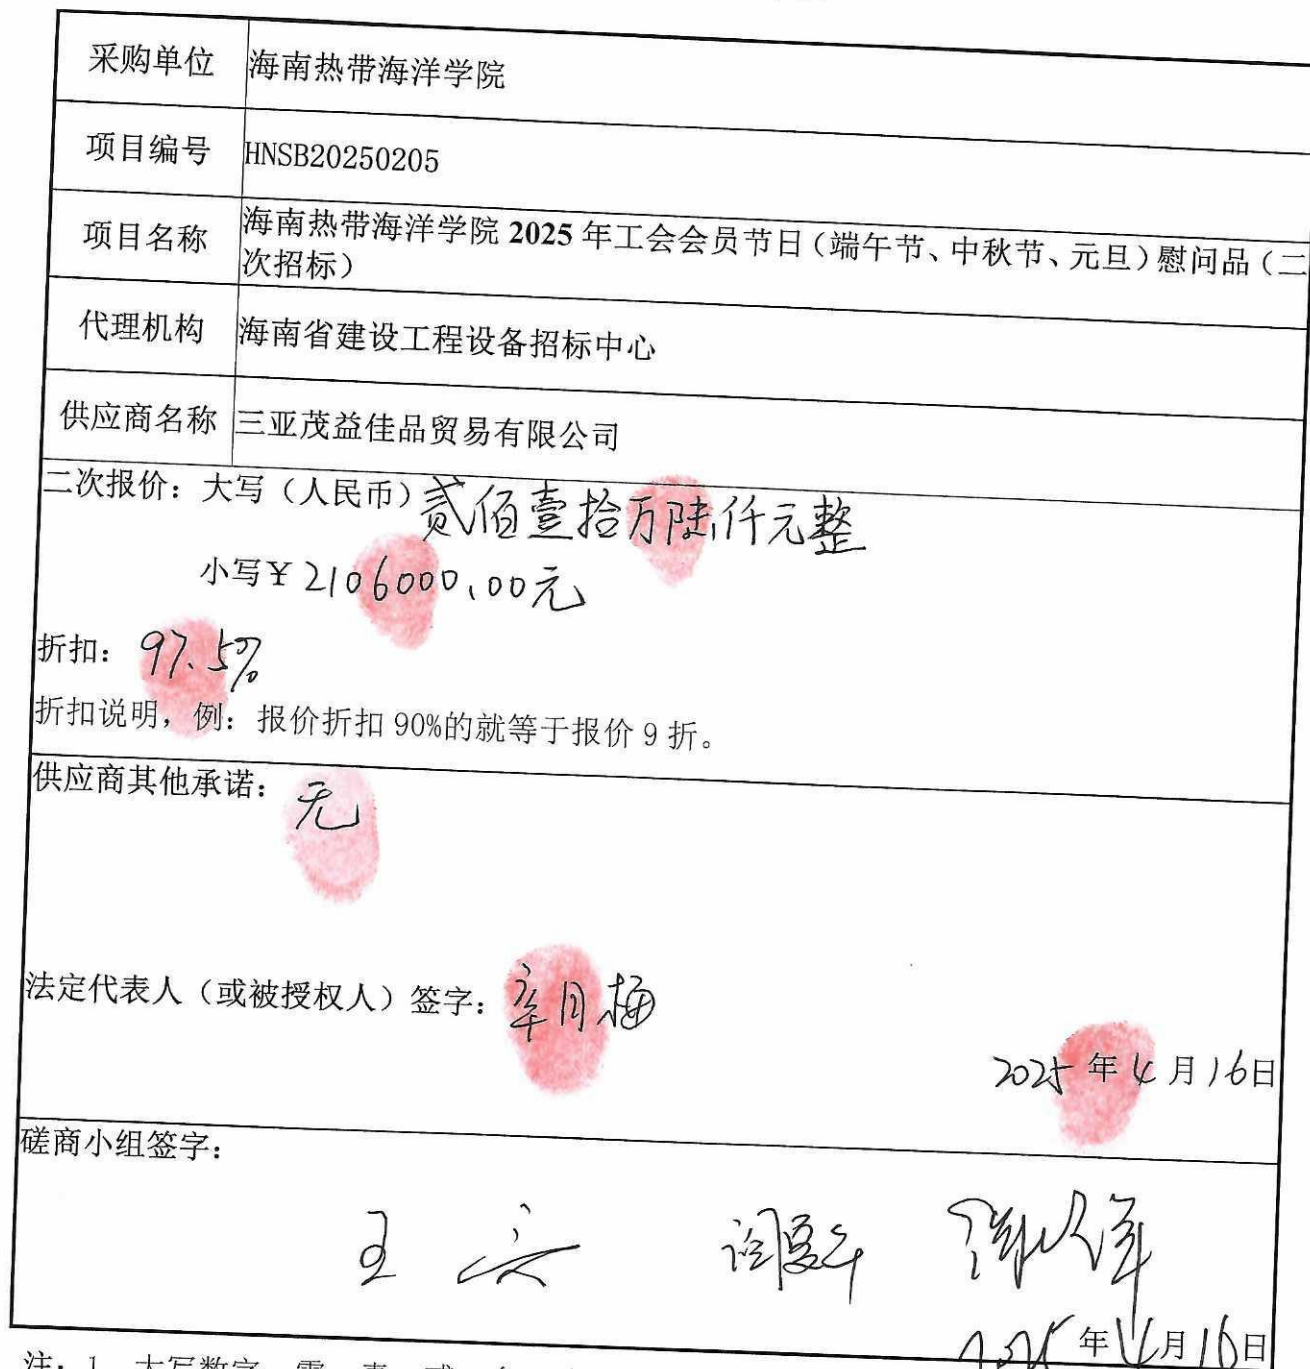 采购单位 海南热带海洋学院
项目编号 HNSB20250205
项目名称 海南热带海洋学院 2025 年工会会员节日（端午节、中秋节、元旦）慰问品（二
次招标）
代理机构 海南省建设工程设备招标中心
供应商名称 三亚茂益佳品贸易有限公司
二次报价：大写（人民币）贰佰壹拾万陆仟元整
小写￥2106000.00元
折扣：97.5%
折扣说明，例：报价折扣 90%的就等于报价 9 折。
供应商其他承诺：无
法定代表人（或被授权人）签字：辛月梅
2025 年 4 月 16 日
磋商小组签字：
2025 年 4 月 16 日
注：1